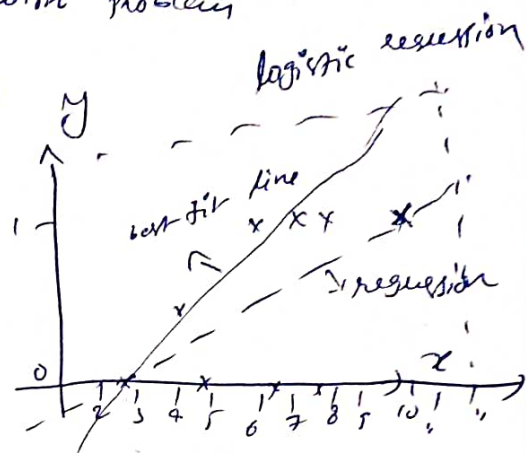 problem
logistic regression
y
best fit line
1
regression
0
x
2 3 4 5 6 7 8 9 10 11 11